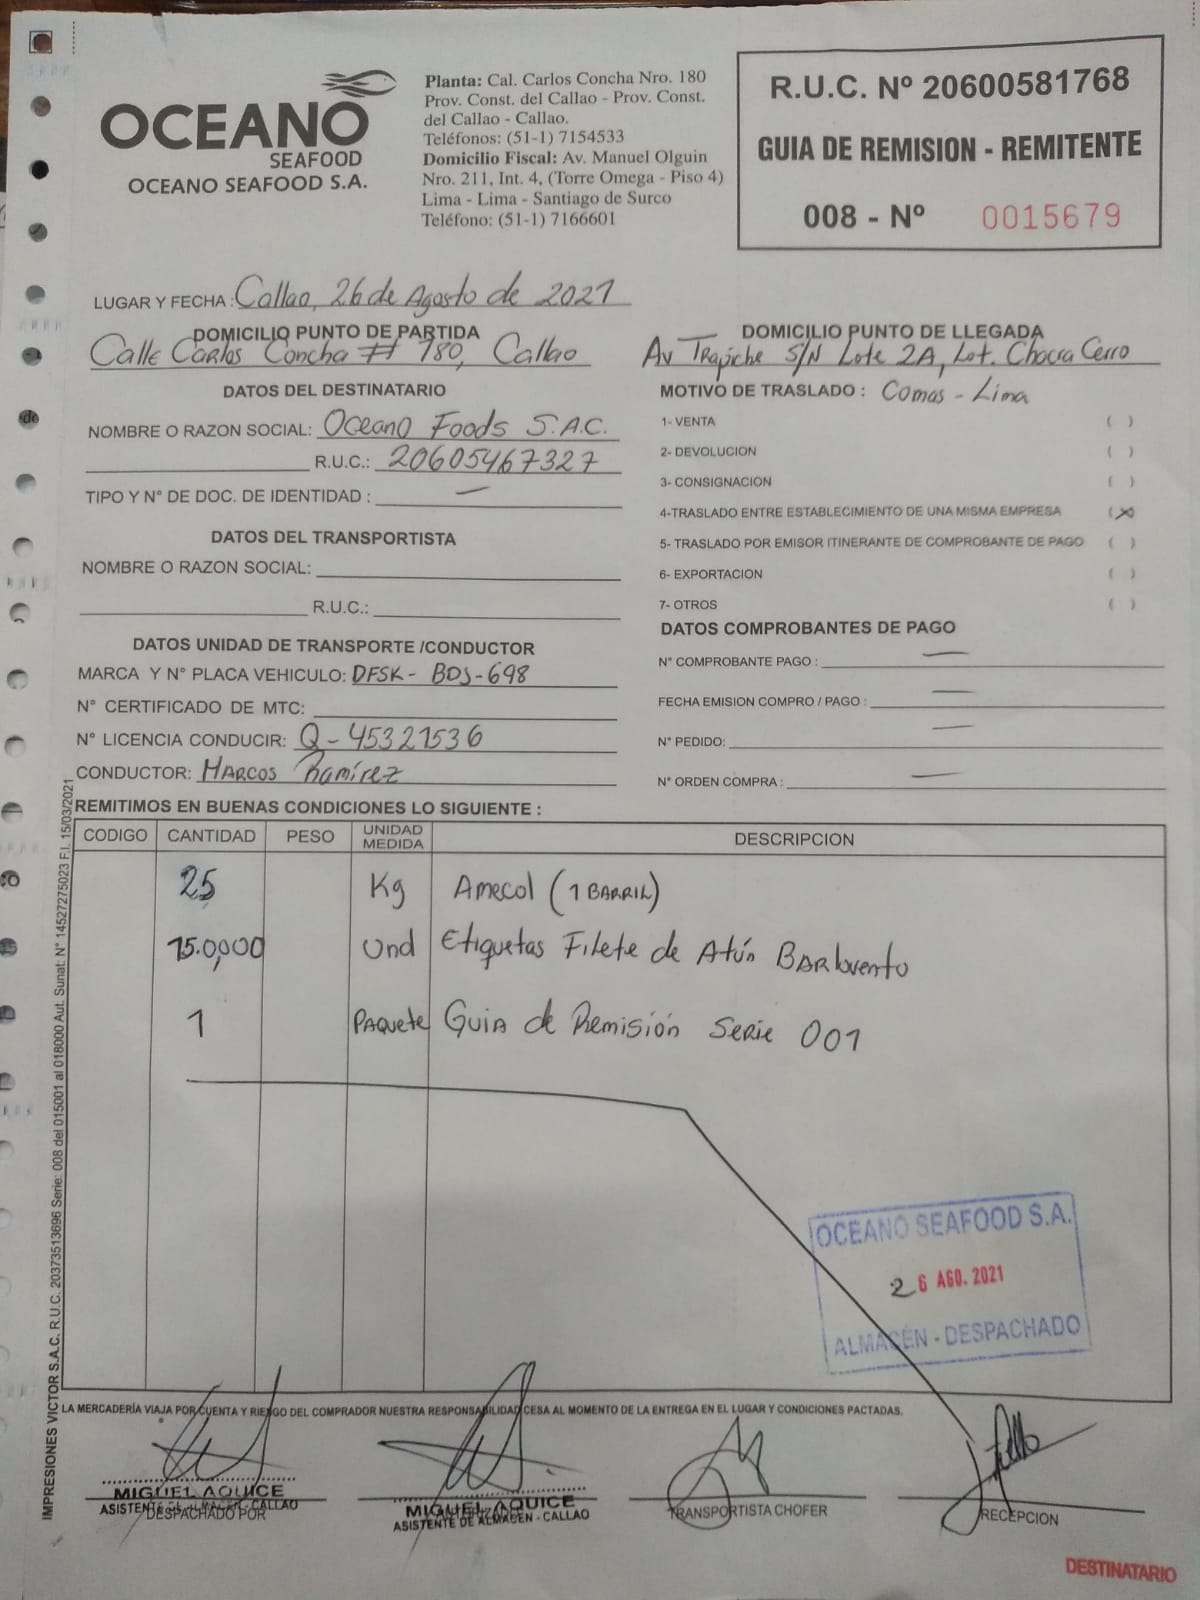 OCEANO
SEAFOOD
OCEANO SEAFOOD S.A.
Planta: Cal. Carlos Concha Nro. 180
Prov. Const. del Callao - Prov. Const.
del Callao - Callao.
Teléfonos: (51-1) 7154533
Domicilio Fiscal: Av. Manuel Olguin
Nro. 211, Int. 4, (Torre Omega - Piso 4)
Lima - Lima - Santiago de Surco
Teléfono: (51-1) 7166601
R.U.C. Nº 20600581768
GUIA DE REMISION - REMITENTE
008 - Nº 0015679
LUGAR Y FECHA: Callao, 26 de Agosto de 2021
DOMICILIO PUNTO DE PARTIDA
Calle Carlos Concha # 180, Callao
DOMICILIO PUNTO DE LLEGADA
Av Trapiche S/N Lote 2A, Lot. Chacra Cerro
DATOS DEL DESTINATARIO
NOMBRE O RAZON SOCIAL: Oceano Foods S.A.C.
R.U.C.: 20605467327
TIPO Y N° DE DOC. DE IDENTIDAD : —
MOTIVO DE TRASLADO : Comas - Lima
1- VENTA ( )
2- DEVOLUCION ( )
3- CONSIGNACION ( )
4-TRASLADO ENTRE ESTABLECIMIENTO DE UNA MISMA EMPRESA (X)
5- TRASLADO POR EMISOR ITINERANTE DE COMPROBANTE DE PAGO ( )
6- EXPORTACION ( )
7- OTROS ( )
DATOS DEL TRANSPORTISTA
NOMBRE O RAZON SOCIAL:
R.U.C.:
DATOS UNIDAD DE TRANSPORTE /CONDUCTOR
MARCA Y N° PLACA VEHICULO: DFSK - BDJ-698
N° CERTIFICADO DE MTC:
N° LICENCIA CONDUCIR: Q-45321536
CONDUCTOR: Marcos Ramírez
DATOS COMPROBANTES DE PAGO
N° COMPROBANTE PAGO : —
FECHA EMISION COMPRO / PAGO : —
N° PEDIDO: —
N° ORDEN COMPRA : —
REMITIMOS EN BUENAS CONDICIONES LO SIGUIENTE :
CODIGO CANTIDAD PESO UNIDAD MEDIDA DESCRIPCION
25 Kg Amecol (1 BARRIL)
15.0,000 Und Etiquetas Filete de Atún BARlovento
1 Paquete Guia de Remisión Serie 001
OCEANO SEAFOOD S.A.
26 AGO. 2021
ALMACÉN - DESPACHADO
LA MERCADERÍA VIAJA POR CUENTA Y RIESGO DEL COMPRADOR NUESTRA RESPONSABILIDAD CESA AL MOMENTO DE LA ENTREGA EN EL LUGAR Y CONDICIONES PACTADAS.
MIGUEL AQUICE
ASISTENTE DE ALMACEN - CALLAO
DESPACHADO POR
MIGUEL AQUICE
ASISTENTE DE ALMACEN - CALLAO
TRANSPORTISTA CHOFER
RECEPCION
DESTINATARIO
IMPRESIONES VICTOR S.A.C. R.U.C. 20373513696 Serie: 008 del 015001 al 018000 Aut. Sunat: N° 14527275023 F.I. 15/03/2021